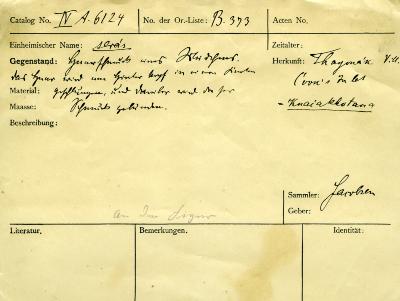 Catalog No. IV A. 6124 No. der Or.-Liste: B. 373 Acten No.
Einheimischer Name: Zeitalter:
Gegenstand: Haarschmuck eines Mädchens. Herkunft:
das Haar wird am Hinterkopf in einen Knoten Cook's Inlet
Material: geflochten, und darüber wird dieser - Knaiakhotana
Maasse: Schmuck gebunden.
Beschreibung:
Sammler: Jacobsen
Geber:
Literatur. Bemerkungen. Identität: